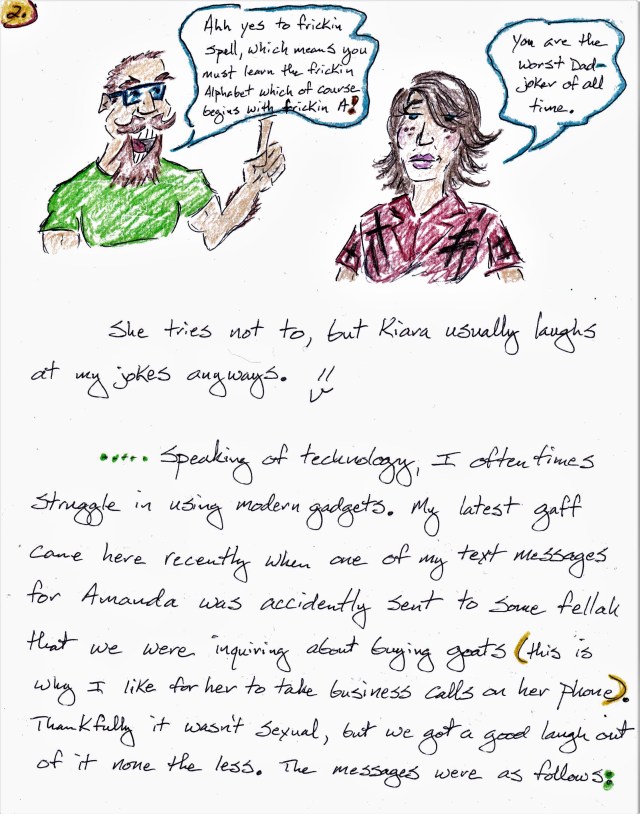 2.
Ahh yes to frickin
spell, which means you
must learn the frickin
Alphabet which of course
begins with frickin A!
You are the
worst Dad-
joker of all
time.
She tries not to, but Kiara usually laughs
at my jokes anyways.
..... Speaking of technology, I often times
struggle in using modern gadgets. My latest gaff
came here recently when one of my text messages
for Amanda was accidently sent to some fellah
that we were inquiring about buying goats (this is
why I like for her to take business calls on her phone).
Thankfully it wasn't sexual, but we got a good laugh out
of it none the less. The messages were as follows: